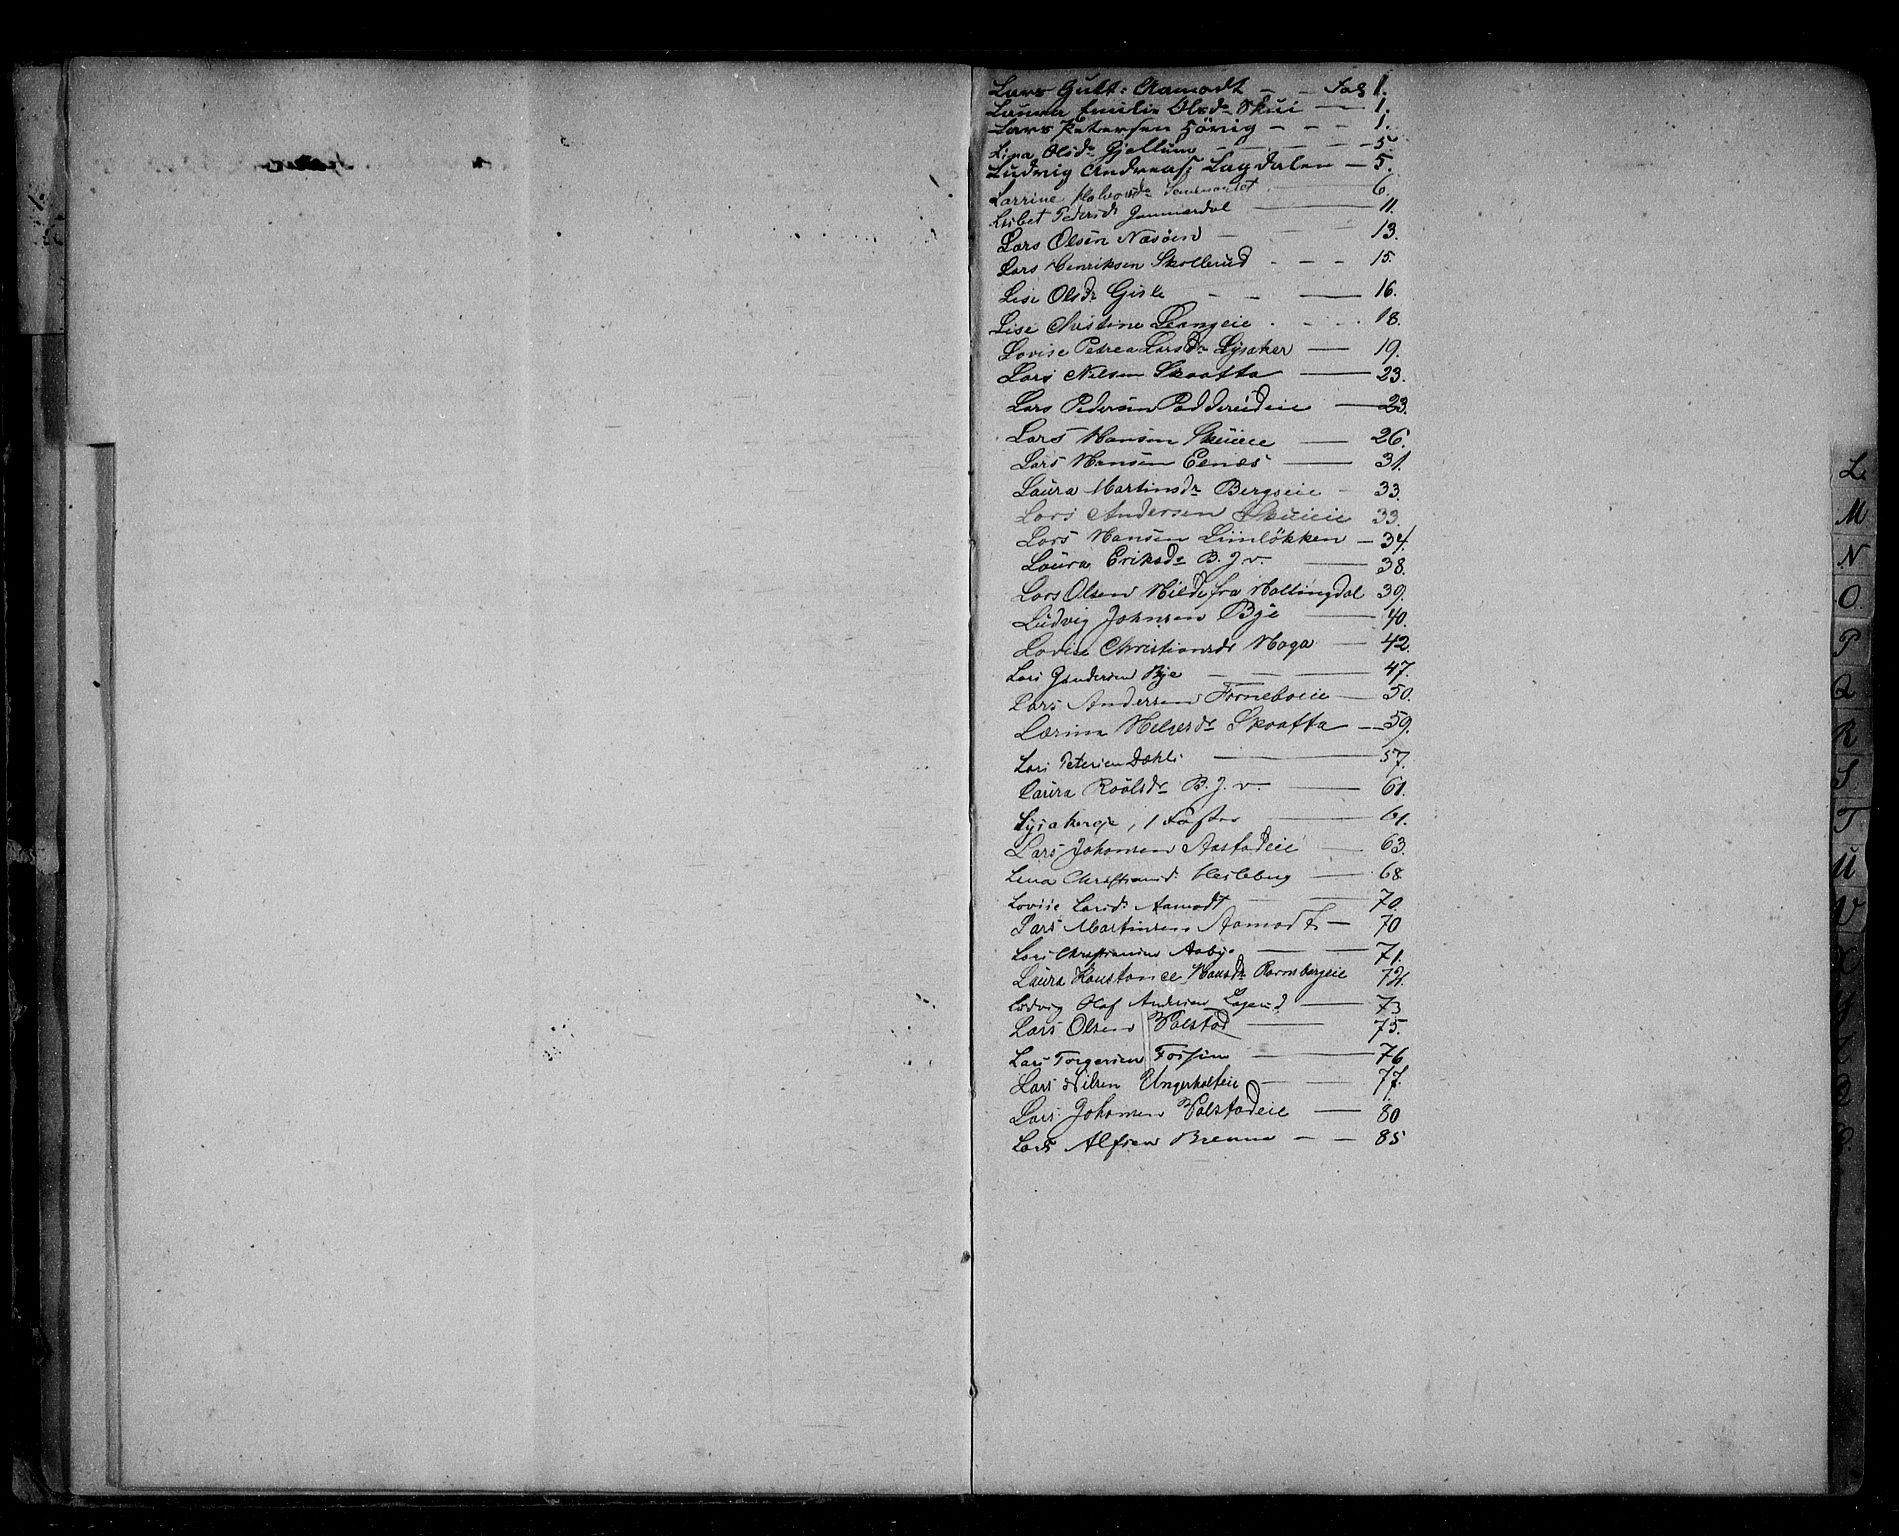 Lars Gutt: Aamodt — — Fol 1.
Laura Emilie Olsdr Skui — 1.
Lars Petersen Hörig — — — 1.
Lina Olsdr Gjellum — — — 5.
Ludvig Andreas Lagdalen — 5.
Larrine Halvorsdr 6.
Lisbet Pedersdr 11.
Lars Olsen Nasöen — 13.
Lars Henriksen Skollerud — — — 15.
Lise Olsdr Gisle — — — 16.
Lise Christine 18.
Lovise Petrea Larsdr Lysaker — 19.
Lars Nelsen Skoatta — 23.
Lars Pedersen Poddereideie — 23.
Lars Hansen Skuieie — 26.
Lars Hansen Eenæs — 31.
Laura Martinsdr Bergseie — 33.
Lars Andersen Skuieie 33.
Lars Hansen Limlökken — 34.
Laura Eriksdr B. J. v. — 38.
Lars Olsen Hilde fra Hallingdal 39.
Ludvig Johnsen Bye — 40.
Lovise Christiansdr Haga — 42.
Lars Gundersen Bye — — — 47.
Lars Andersen Forneboeie — 50.
Larine Helgesdr Skoatta — 59.
Lars Petersen Dæhli — 57.
Laura Roölsdr B. J. v. — 61.
Lysakereje, 1 Foster — 61.
Lars Johansen Aastadeie — 63.
Lena Christiansd. Hesleberg — 68
Lovise Larsdr Aamodt — — 70.
Lars Martinsen Aamodt — 70
Lars Christiansen Aabye — — 71.
Laura Konstance Hansdr Ramsbergeie 72.
Ludvig Olaf Andersen Lagerud — 73
Lars Olsen Valstad — 75.
Lars Torgersen Fossum — 76
Lars Nilsen Ungerholteie — 77.
Lars Johansen Valstadeie — 80
Lars Alfsen Brenna — — 85
L
M
N
O.
P
Q
R
S
T
U
V